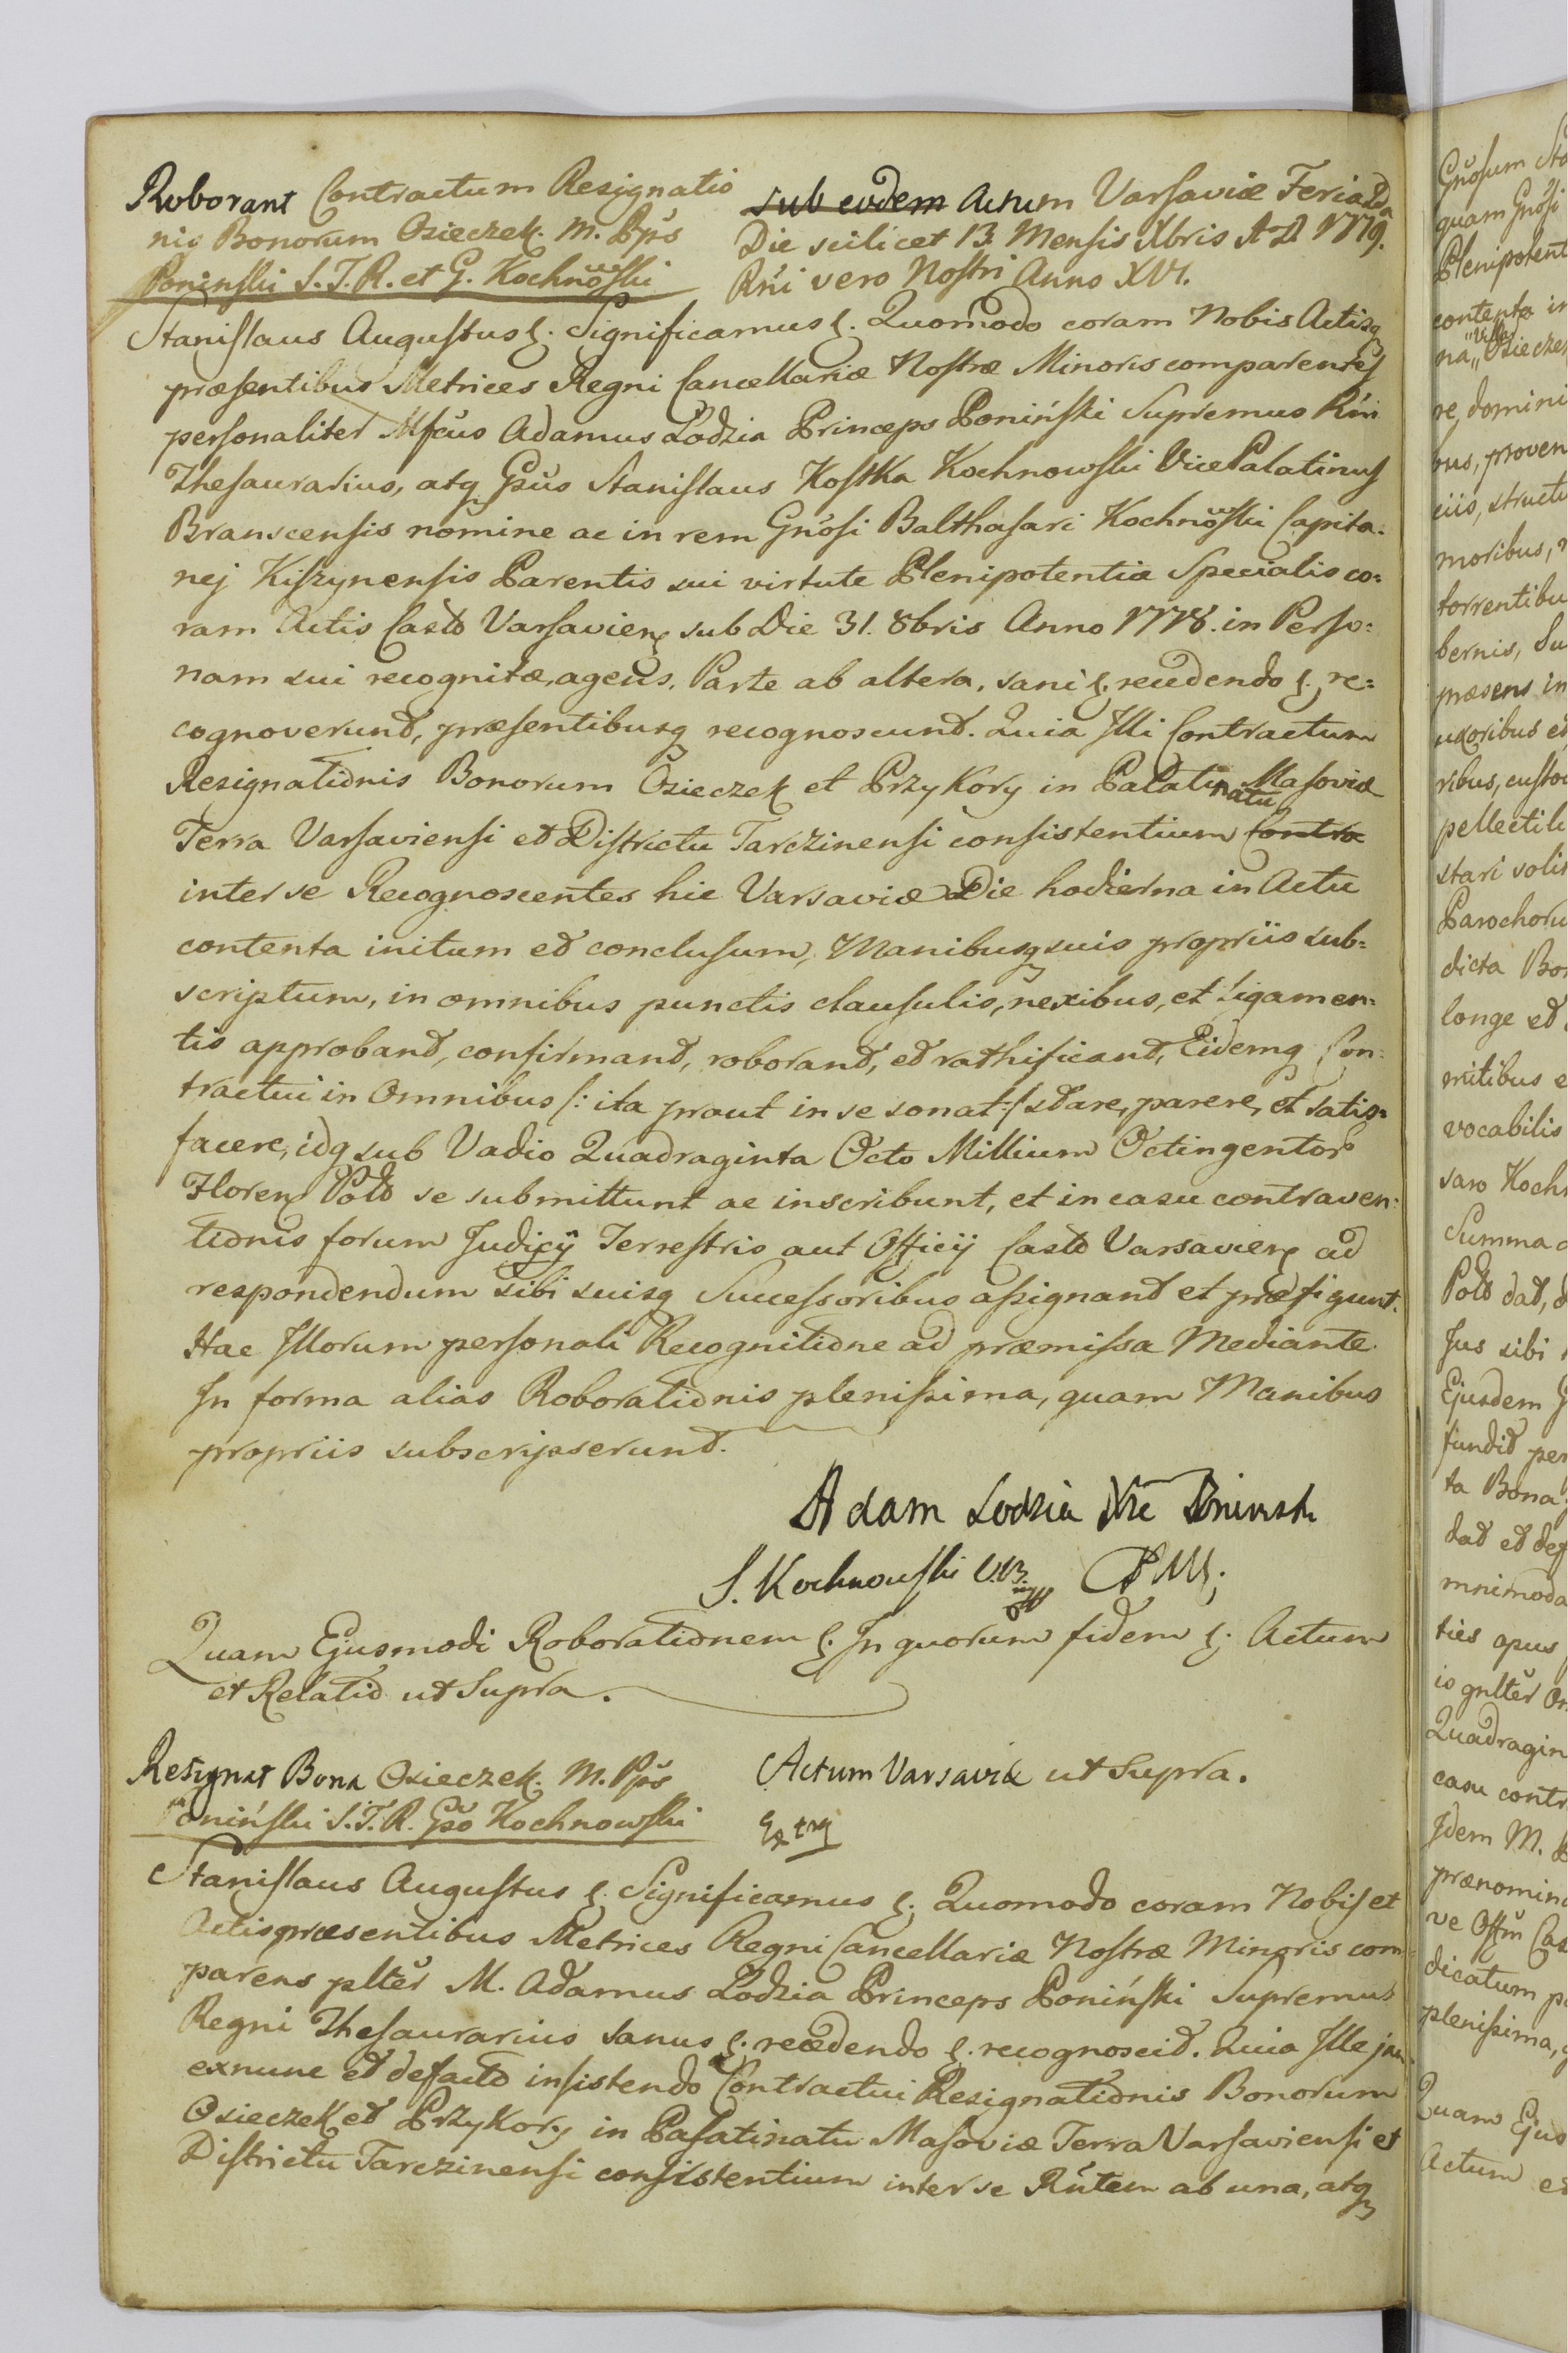 Roborant Contractum Resignatio
nis Bonorum Osieczek. M. Pps
Poninski S. T. R. et G. Kochnowski
sub eodem Actum Varsaviæ Feria 2da
Die scilicet 13. Mensis Xbris A. D. 1779.
Rńi vero Nostri Anno XVI.
Stanislaus Augustus &. Significamus &. Quomodo coram Nobis Actisq
præsentibus Metrices Regni Cancellariæ Nostræ Minoris comparentes
personaliter Mfcus Adamus Łodzia Princeps Poniński Supremus Rńi
Thesaurarius, atq Gsus Stanislaus Kostka Kochnowski Vice Palatinus
Branscensis nomine ac in rem Gnosi Balthasari Kochnowski Capita=
nej Kiszynensis Parentis sui virtute Plenipotentiæ Specialis co=
ram Actis Castr Varsavien sub Die 31. 8bris Anno 1778. in Perso=
nam sui recognitæ, agens, Parte ab altera, sani &. recedendo &. re=
cognoverunt, præsentibusq recognoscunt. Quia Illi Contractum
Resignationis Bonorum Osieczek et Przykory in Palatinatu Masoviæ
Terra Varsaviensi et Districtu Tarczinensi consistentium Contra
inter se Recognoscentes hic Varsaviæ Die hodierna in Actu
contenta initum et conclusum, Manibusq suis propriis sub=
scriptum, in omnibus punctis clausulis, nexibus, et ligamen=
tis approbant, confirmant, roborant, et rathificant, Eidemq Con=
tractui in Omnibus /: ita prout in se sonat :/ stare, parere, et satis=
facere, idq sub Vadio Quadraginta Octo Millium Octingentor
Floren Pold se submittunt ac inscribunt, et in casu contraven=
tionis forum Judicij Terrestris aut Officij Castr Varsavien ad
respondendum sibi suisq Successoribus assignant et præfigunt.
Hac Illorum personali Recognitione ad præmissa Mediante.
In forma alias Roborationis plenissima, quam Manibus
propriis subscripserunt.
Adam Lodzia
S. Kochnowski V.B.
Quam Ejusmodi Roborationem &. In quorum fidem &. Actum
et Relatio ut Supra.
Resignat Bona Osieczek. M. Pps
Poniński S. T. R. Gso Kochnowski
Actum Varsaviæ ut Supra.
Stanislaus Augustus &. Significamus &. Quomodo coram Nobis et
Actis præsentibus Metrices Regni Cancellariæ Nostræ Minoris com=
parens plter M. Adamus Łodzia Princeps Poniński Supremus
Regni Thesaurarius sanus &. recedendo &. recognoscit. Quia Ille jam
exnunc et defacto insistendo Contractui Resignationis Bonorum
Osieczek et Przykory in Palatinatu Masoviæ Terra Varsaviensi et
Districtu Tarczinensi consistentium inter se Rńtem ab una, atq
Gnosum
quam Gnosi
Plenipotent
contenta in
na Villa Osieczek
re, domini
bus, proven
ciis, structu
moribus,
torrentibu
bernis,
præsens in
uxoribus et
ribus, custo
pellectili
stari solit
Parochoru
dicta Bo
longe et
mitibus e
vocabilis
saro Koch
Summa
Pold dat,
Jus sibi
Ejusdem
fundit per
ta Bona
dat et def
mnimoda
ties opus
is gnlter
Quadragin
casu contr
Idem M.
prænomin
ve Offm Cas
dicatum p
plenissima,
Quam Ejus
Actum et